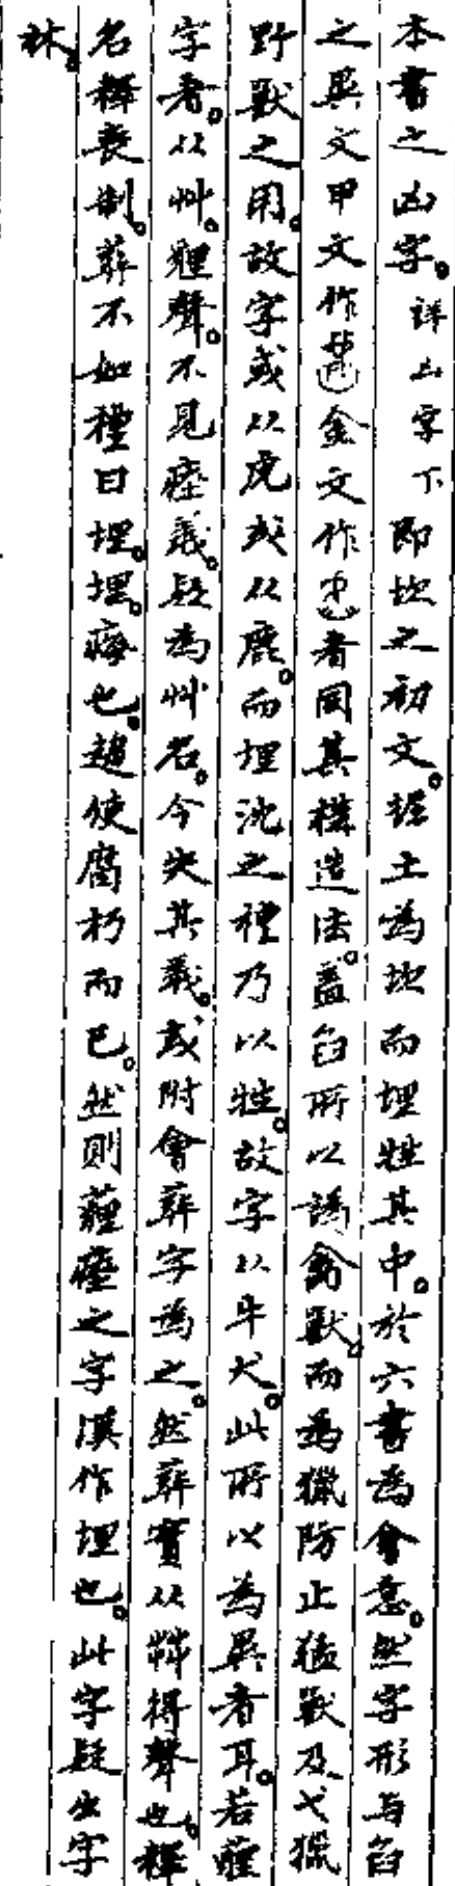 本書之凶字。詳凵字下即坎之初文。掘土為坎而埋牲其中。於六書為會意。然字形与臽
之異文甲文作金文作者同其構造法。蓋臽所以誘禽獸。而為獵防止猛獸及弋獵
野獸之用。故字或从虎或从鹿。而埋沈之禮乃以牲。故字从牛犬。此所以為異者耳。若薶
字者。从艸。貍聲。不見瘞義。疑為艸名。今失其義。或附會葬字為之。然葬實从茻得聲也。釋
名釋喪制。葬不如禮曰埋。埋。痗也。趨使腐朽而已。然則薶瘞之字漢作埋也。此字疑出字
林。